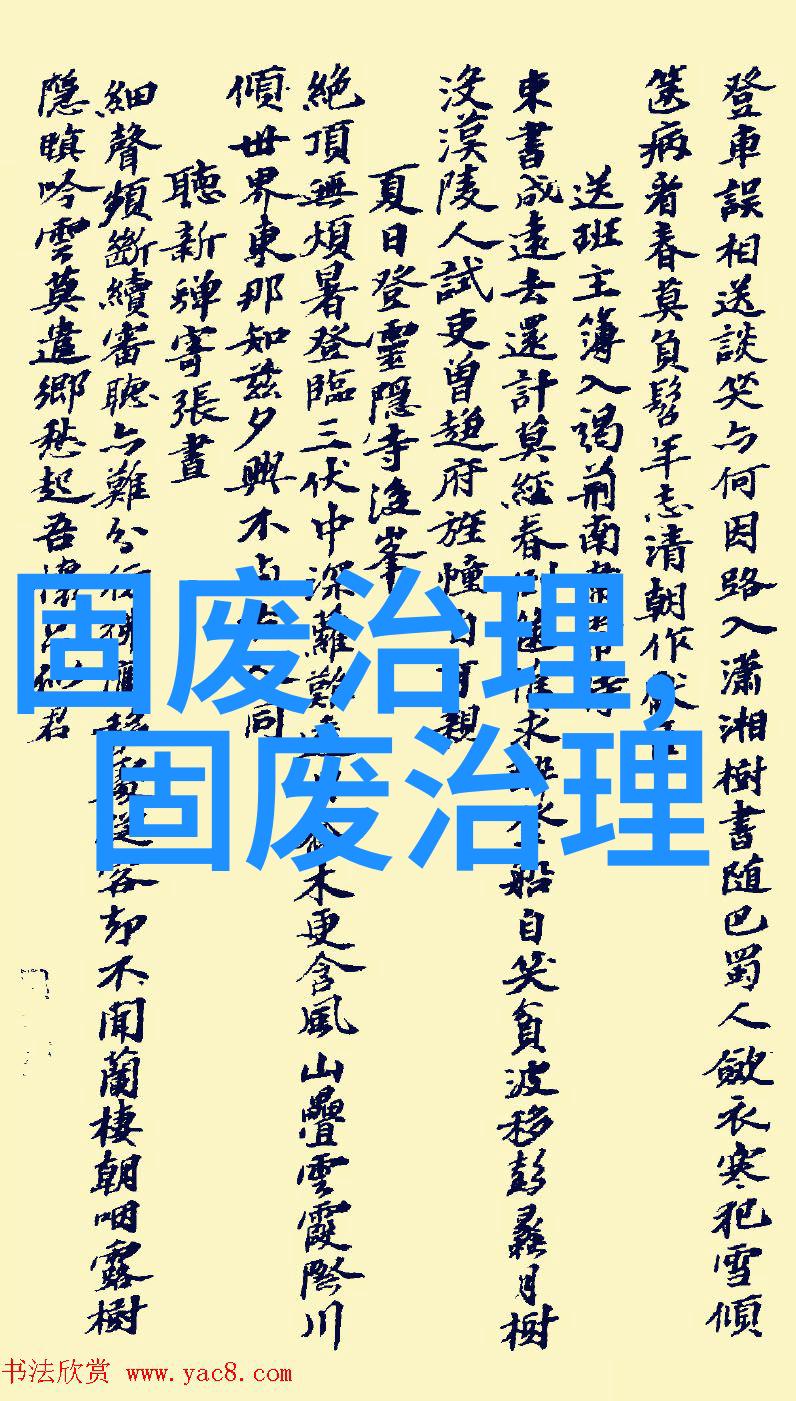 登車誤相送談笑亦何因路入瀟湘樹書隨巴蜀人斂衣寒犯雪傾
篋病看春莫負髫年志清朝作
送班主簿入謁荊南
東書成遠去還計莫經春
求
船自笑貧波移彭蠡月樹
沒漢陵人試吏曾趨府旌幢自可親
夏日登靈隱寺後峯
絕頂無煩暑登臨三伏中深蘿難
木更含風山疊雲霞際川
傾世界東那知茲夕興不
同
聽新蟬寄張晝
細聲頻斷續審聽亦難分
客却不聞蘭棲朝咽露樹
隱暝吟雲莫遣鄉愁起吾懷
君
固废治理,
固废治理
书法欣赏 www.yac8.com